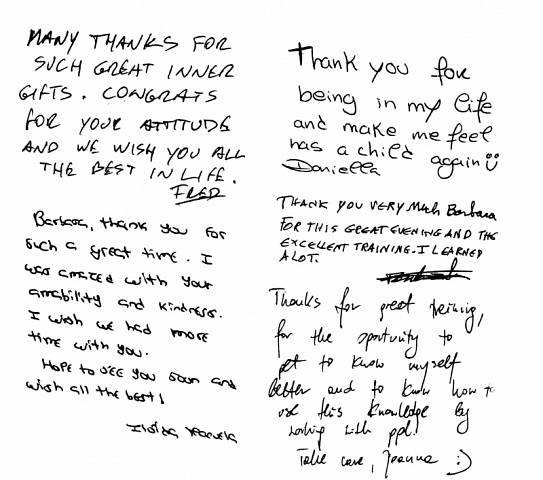 MANY THANKS FOR
SUCH GREAT INNER
GIFTS. CONGRATS
FOR YOUR ATTITUDE
AND WE WISH YOU ALL
THE BEST IN LIFE.
FRED
Thank you for
being in my life
and make me feel
has a child again
Daniella
Barbara, thank you for
such a great time. I
was amazed with your
amability and kindness.
I wish we had more
time with you.
Hope to see you soon and
wish all the best!
THANK YOU VERY Much Barbara
FOR THIS GREAT EVENING AND THE
EXCELLENT TRAINING. I LEARNED
A LOT.
Thanks for great treining,
for the oportunity to
get to know myself
better and to know how to
use this knowledge by
working with ppl.
Take care, Joanna :)